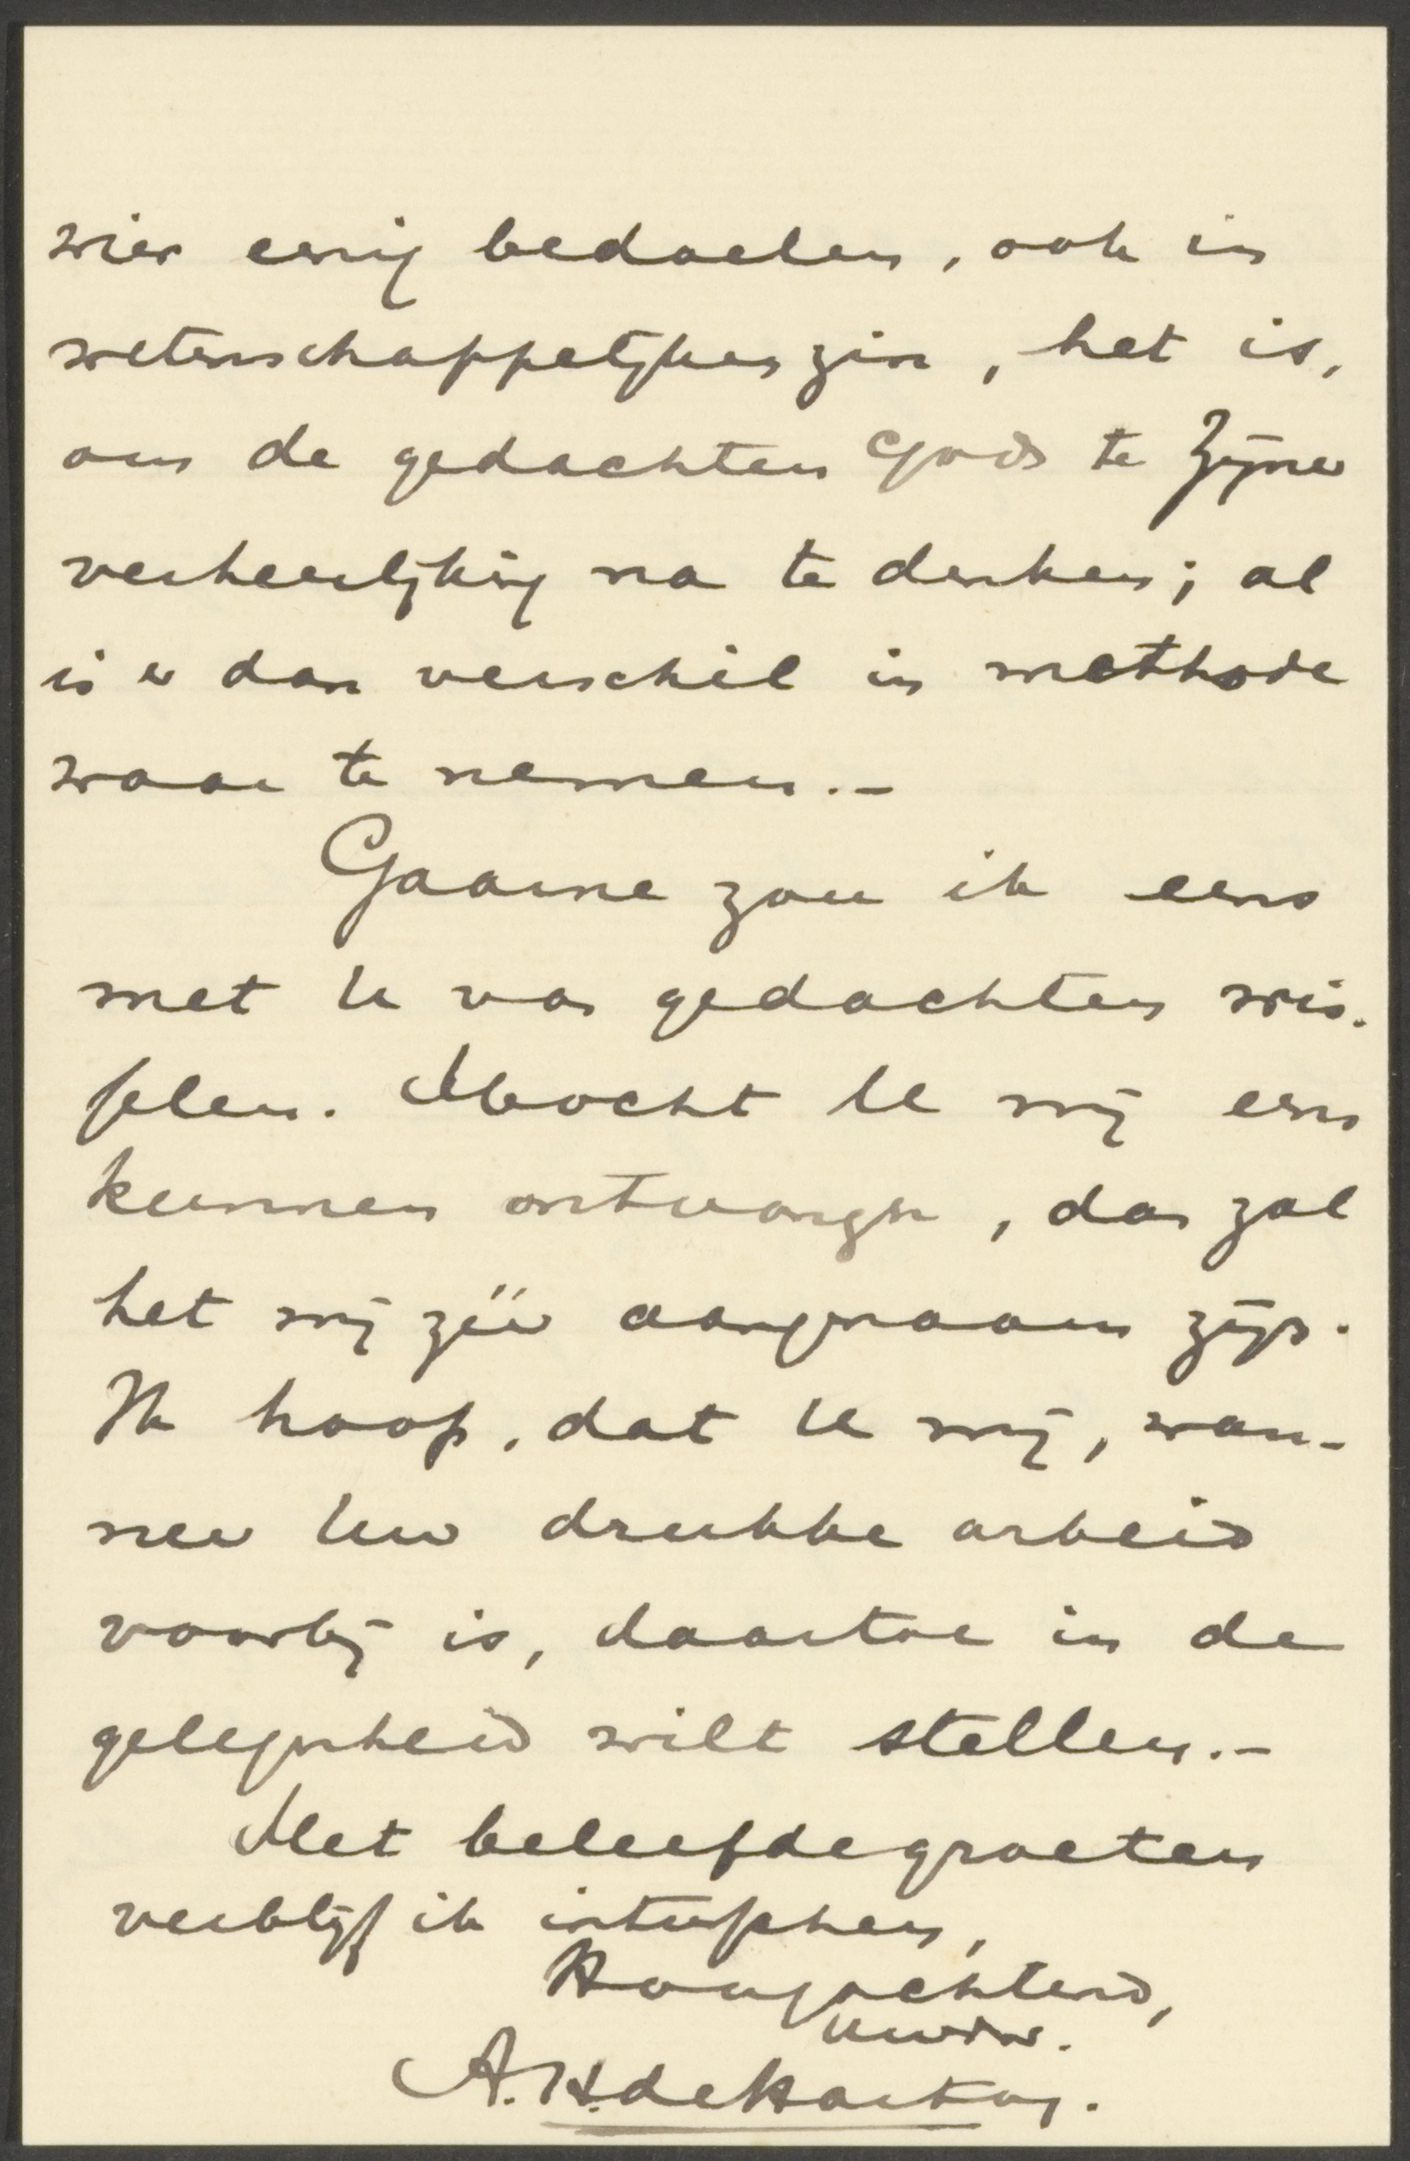 wier eenig bedoelen, ook in
wetenschappelijken zin, het is,
om de gedachten Gods te Zijner
verheerlijking na te denken; al
is er dan verschil in methode
waar te nemen.-
Gaarne zou ik eens
met U van gedachten wis-
selen. Mocht U mij eens
kunnen ontvangen, dan zal
het mij zeër aangenaam zijn.
Ik hoop, dat U mij, wan-
neer Uw drukke arbeid
voorbij is, daartoe in de
gelegenheid wilt stellen.-
Met beleefde groeten
verblijf ik intusschen,
Hoogachtend,
Uwdw.
A. H. de Hartog.